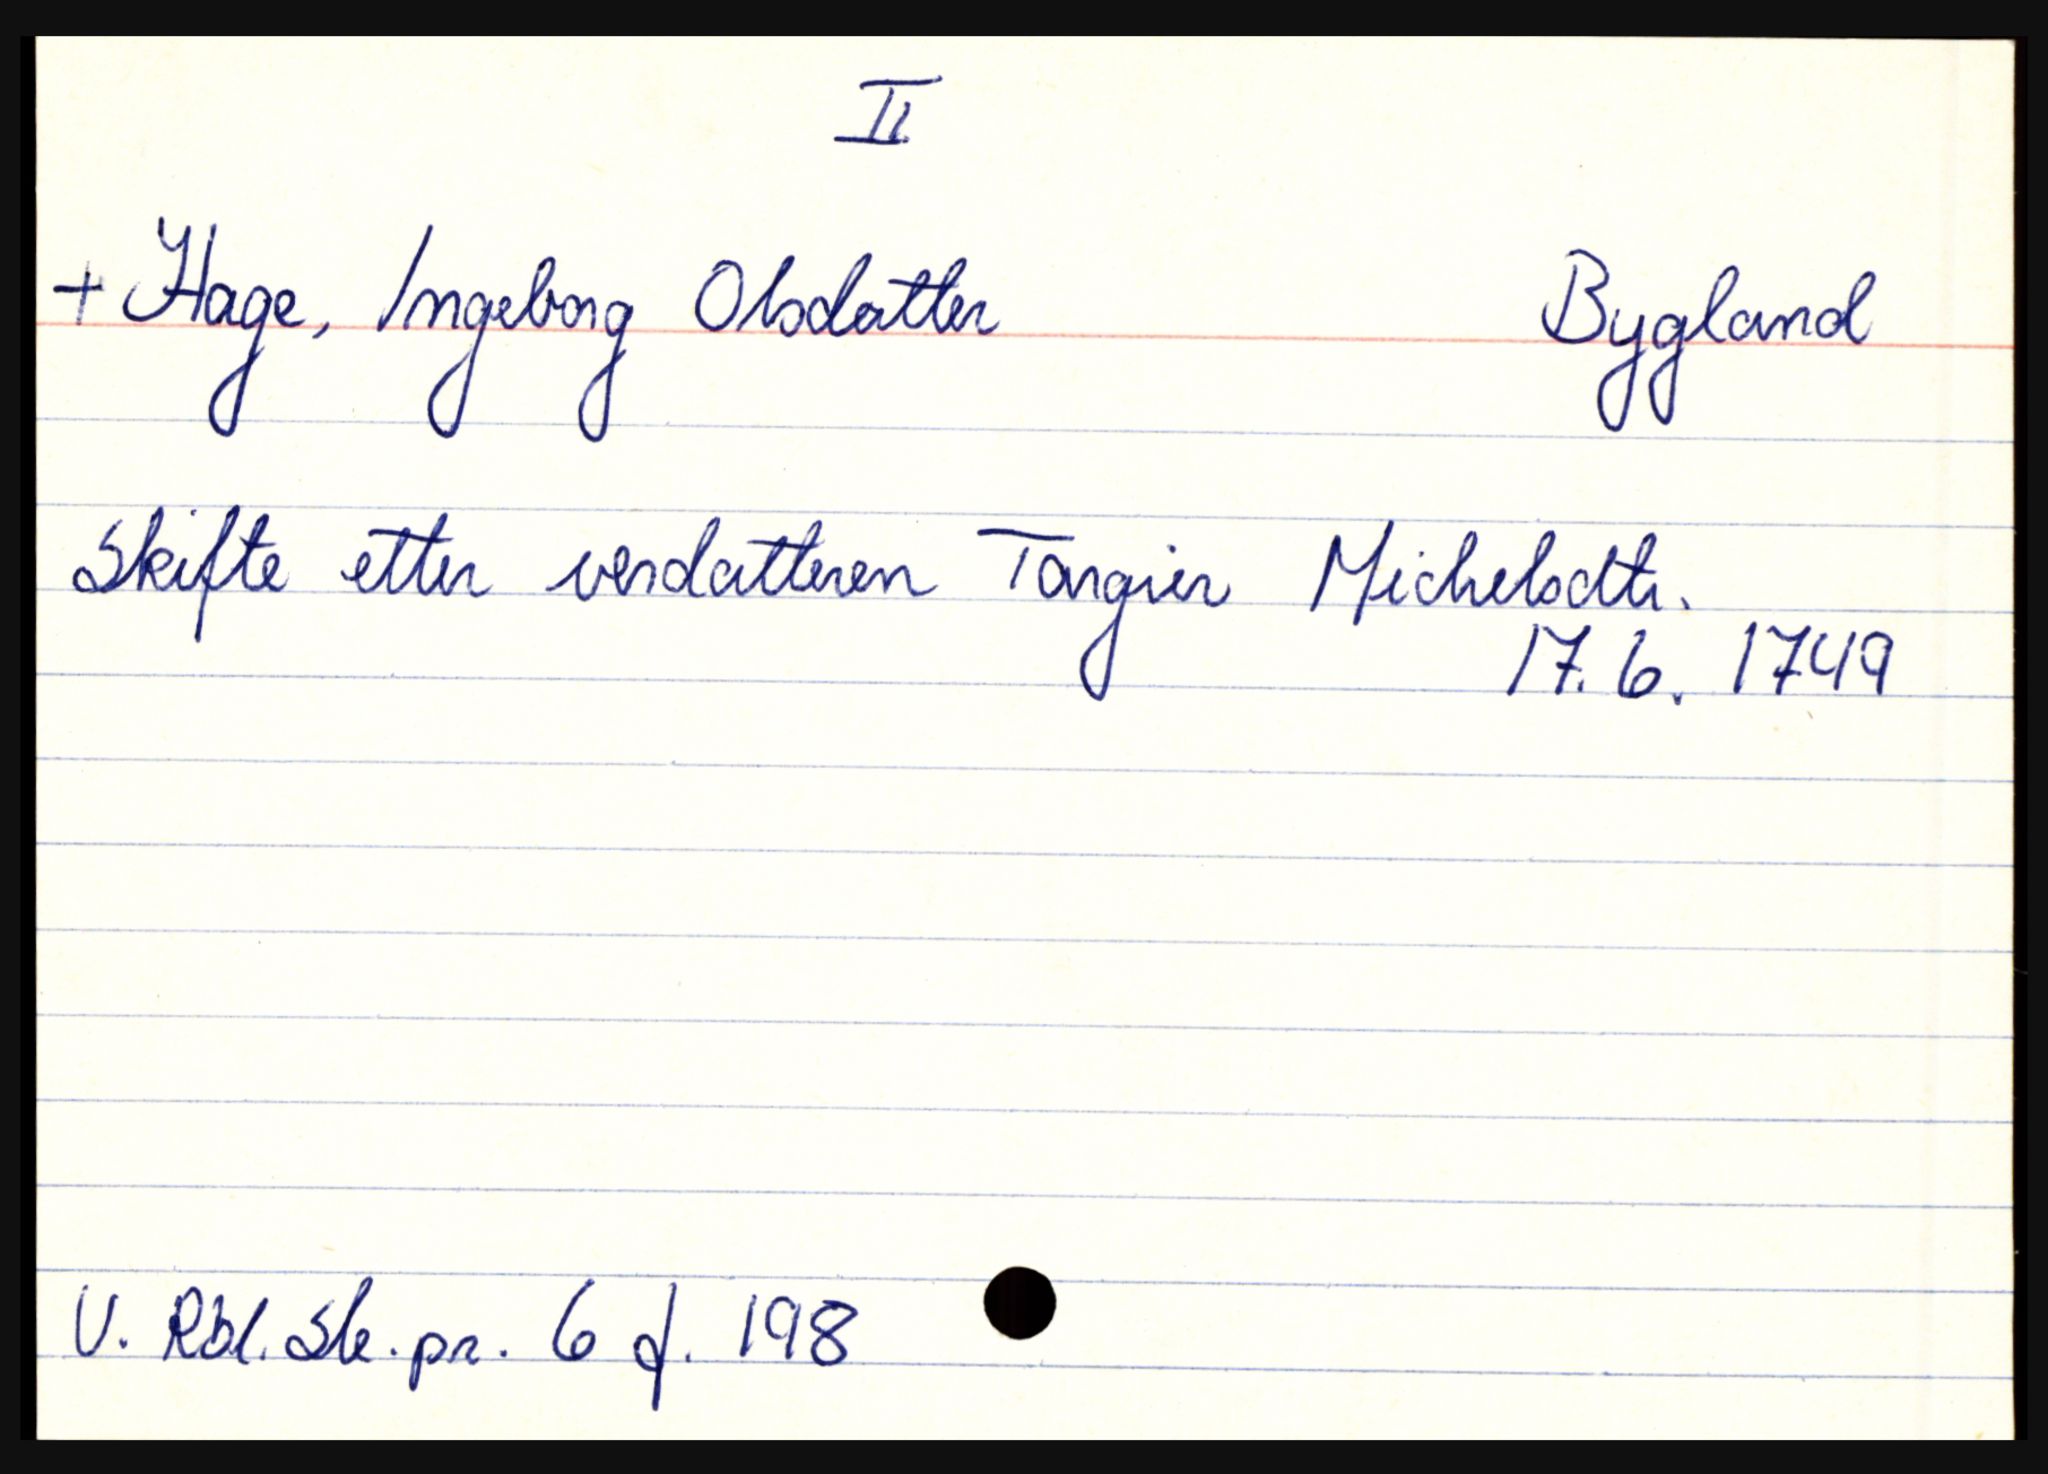 II
+ Hage, Ingeborg Olsdatter Bygland
Skifte etter verdatteren Torgier Michelsdtr.
17. 6. 1749
V. Rbl. Sk. pr. 6 f. 198